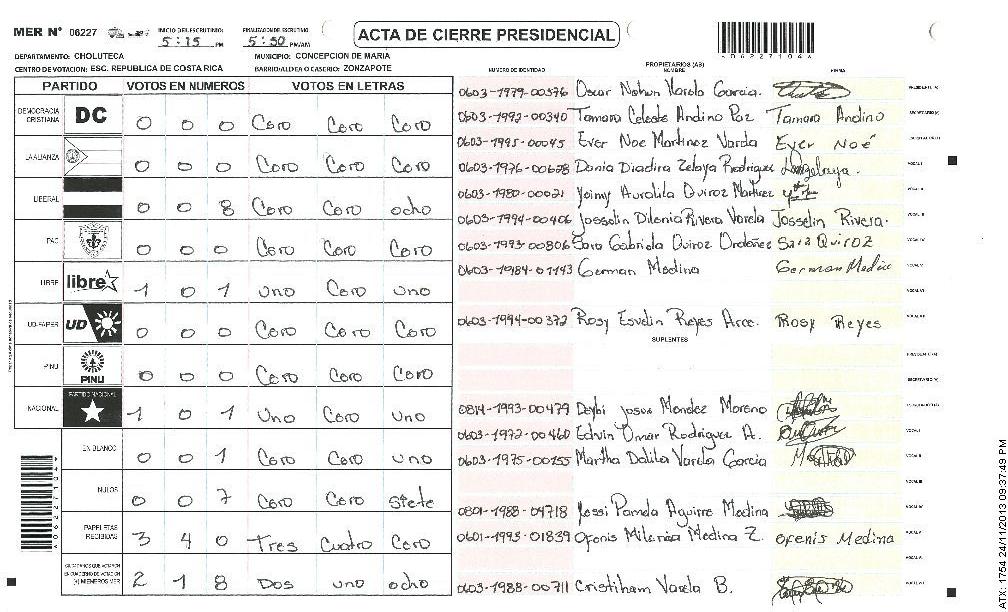 MER Nº 06227
INICIO DEL ESCRUTINIO: 5:15 PM
FINALIZACION DE ESCRUTINIO 5:50 PM/AM
ACTA DE CIERRE PRESIDENCIAL
DEPARTAMENTO: CHOLUTECA
MUNICIPIO: CONCEPCION DE MARIA
CENTRO DE VOTACION: ESC. REPUBLICA DE COSTA RICA
BARRIO/ALDEA O CASERIO: ZONZAPOTE
PARTIDO VOTOS EN NUMEROS VOTOS EN LETRAS
DEMOCRACIA CRISTIANA DC 0 0 0 Cero Cero Cero
LA ALIANZA 0 0 0 Cero Cero Cero
LIBERAL 0 0 8 Cero Cero ocho
PAC 0 0 0 Cero Cero Cero
LIBRE libre 1 0 1 uno Cero uno
UD-FAPER UD 0 0 0 Cero Cero Cero
PINU PINU 0 0 0 Cero Cero Cero
NACIONAL PARTIDO NACIONAL 1 0 1 Uno Cero uno
EN BLANCO 0 0 1 Cero Cero uno
NULOS 0 0 7 Cero Cero siete
PAPELETAS RECIBIDAS 3 4 0 Tres Cuatro Cero
CIUDADANOS QUE VOTARON EN CUADERNO DE VOTACION (+) MIEMBROS MER 2 1 8 Dos uno ocho
PROPIETARIOS (AS)
NUMERO DE IDENTIDAD NOMBRE FIRMA
0603-1979-00376 Oscar Nahun Varela Garcia. PRESIDENTE (A)
0603-1992-00340 Tamara Celeste Andino Paz Tamara Andino SECRETARIO (A)
0603-1995-00045 Ever Noe Martinez Varela Ever Noé
0603-1976-00628 Dania Diadira Zelaya Rodriguez VOCAL I
0603-1980-00021 Yoimy Auralila Quiroz Martinez
0603-1994-00406 Josselin Dilenia Rivera Varela Josselin Rivera.
0603-1993-00806 Sara Gabriela Quiroz Ordoñez Sara Quiroz
0603-1984-01143 German Medina German Medina
0603-1994-00372 Rosy Esvelin Reyes Arce. Rosy Reyes
SUPLENTES
PRESIDENTE (A)
SECRETARIO (A)
0814-1993-00479 Deybi Josue Mendez Moreno
0603-1972-00460 Edvin Omar Rodriguez A.
0603-1975-00155 Martha Dalila Varela Garcia
0801-1988-04718 Yessi Pamela Aguirre Medina
0601-1993-01839 Ofenis Milenia Medina Z. Ofenis Medina
0603-1988-00711 Cristiham Varela B.
ATX: 1754 24/11/2013 09:37:49 PM